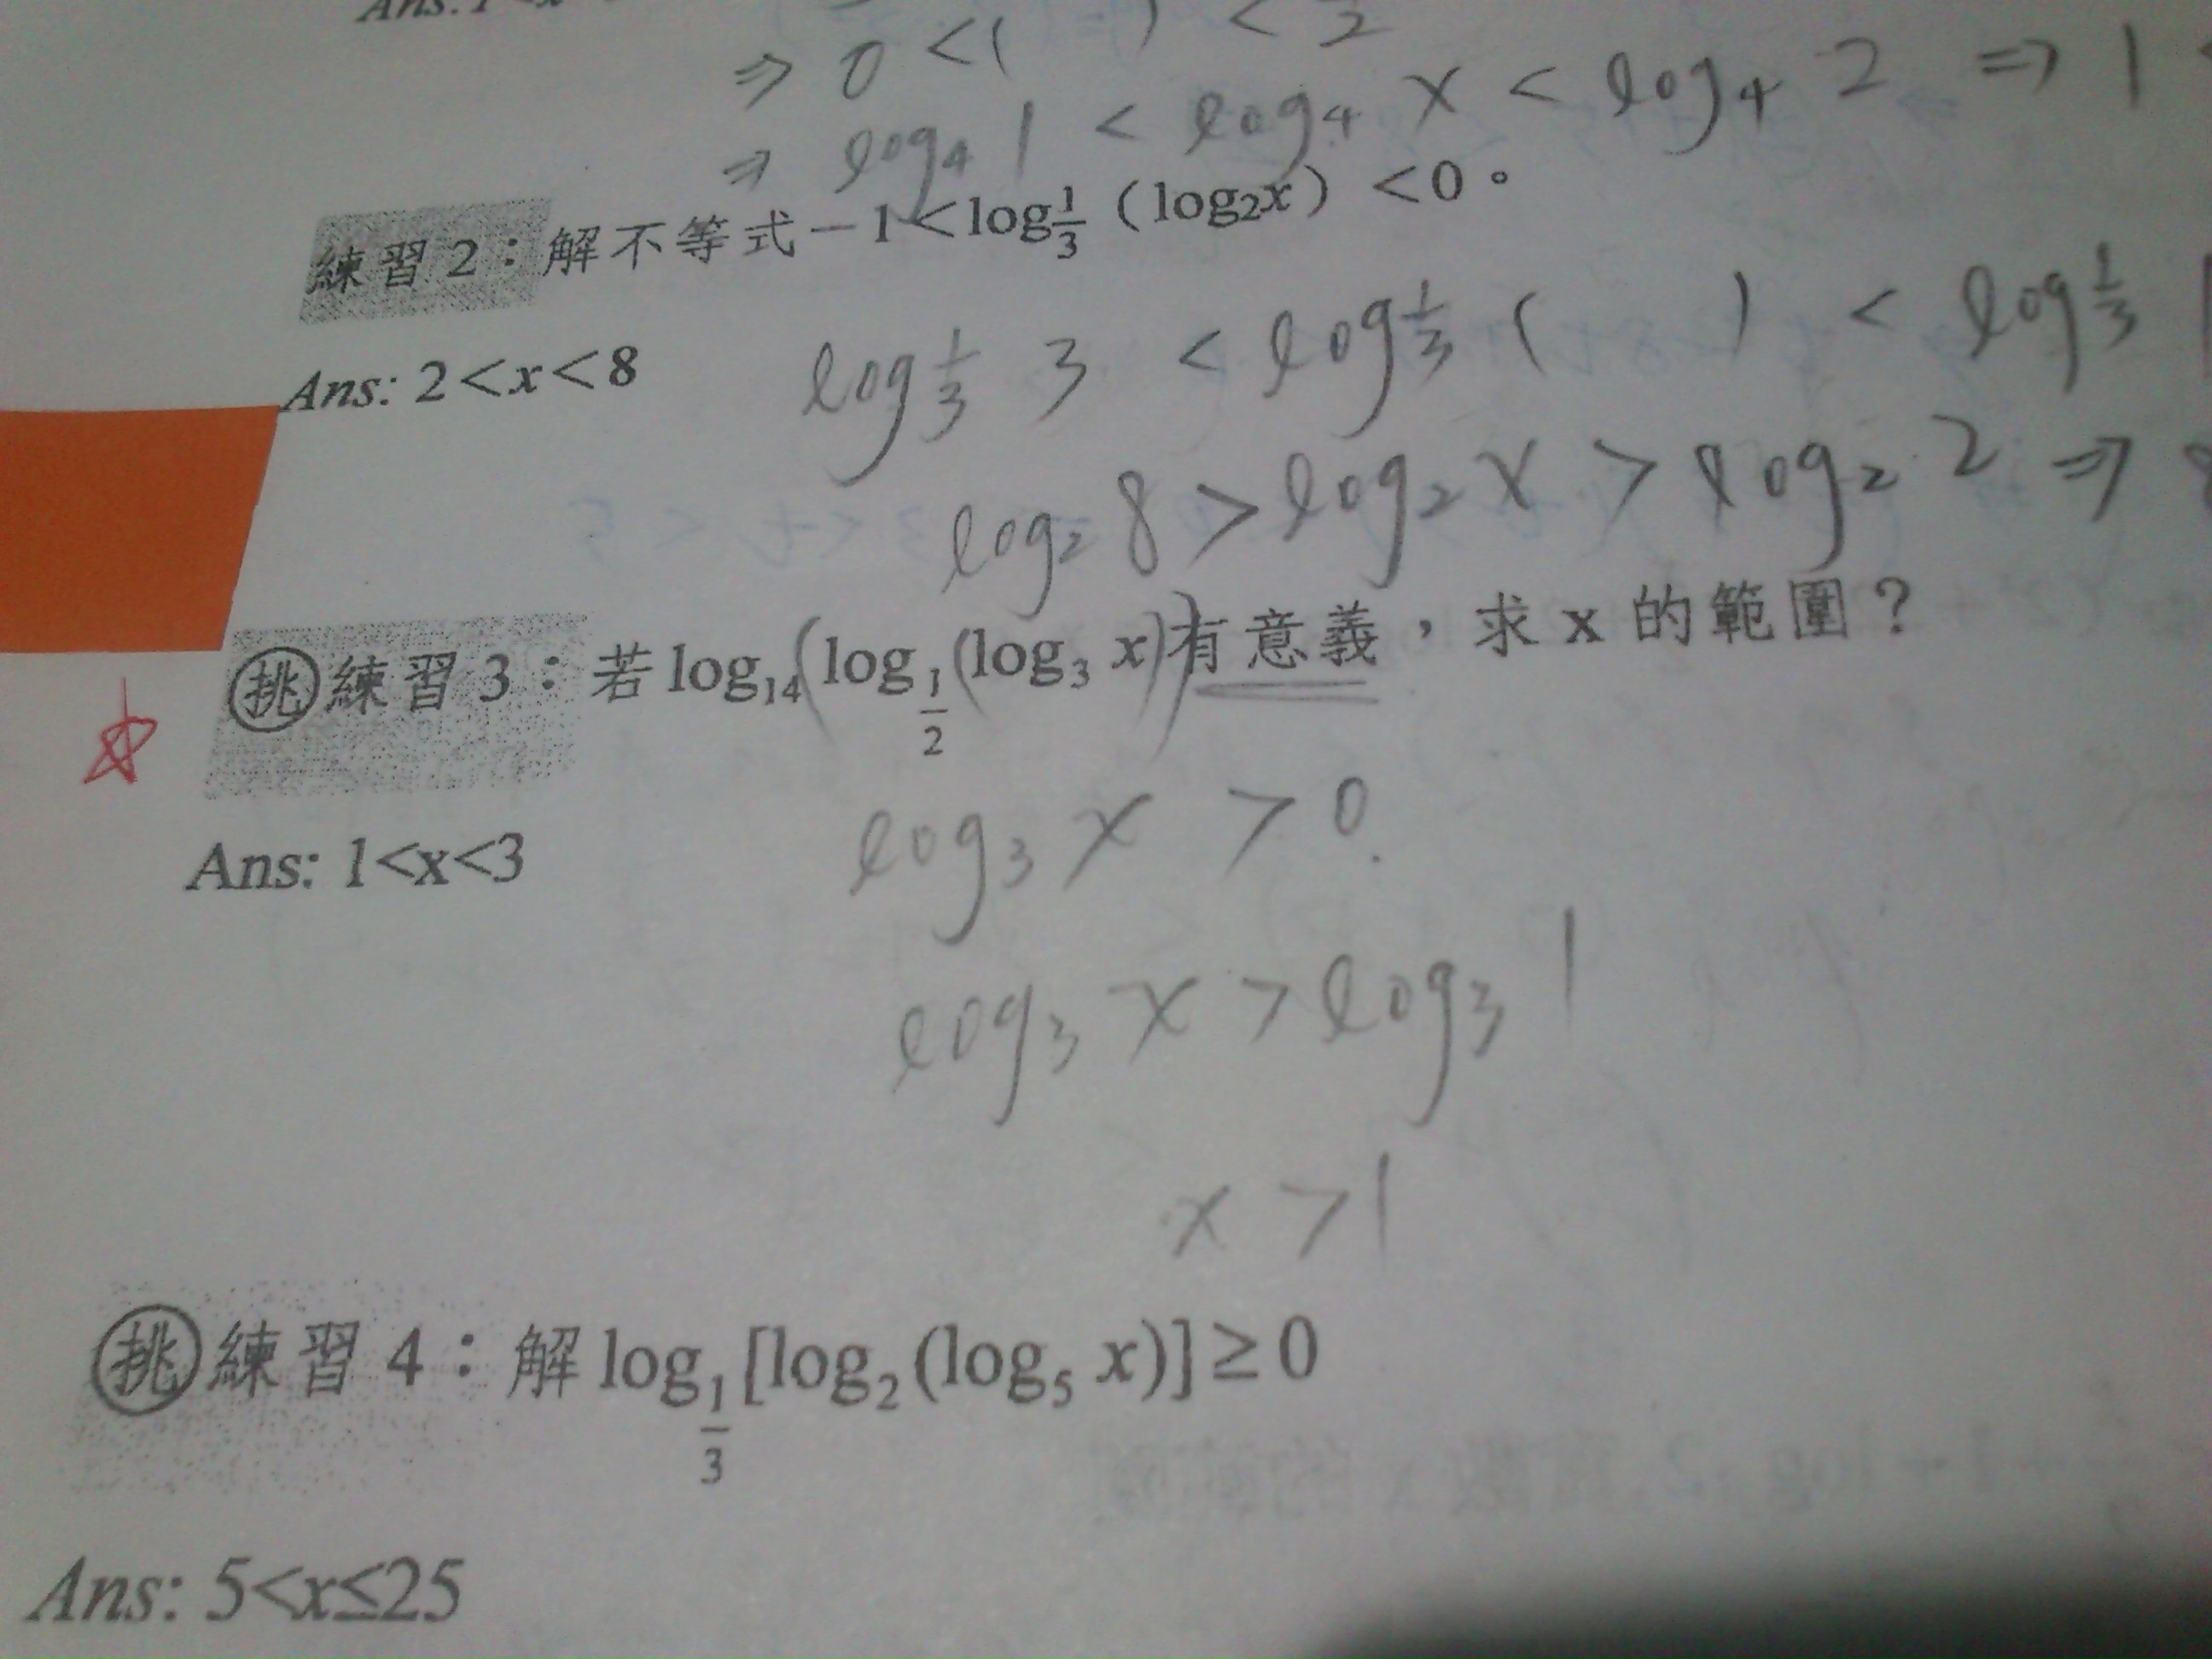 Ans: 1<x
⇒ 0 < ( ) < 1/2
⇒ log₄ 1 < log₄ x < log₄ 2 ⇒ 1
練習 2：解不等式－1＜log 1/3（log₂x）＜0。
Ans: 2＜x＜8
log 1/3 3 < log 1/3 ( ) < log 1/3 1
log₂ 8 > log₂ x > log₂ 2 ⇒ 8
挑 練習 3：若 log₁₄(log 1/2 (log₃ x))有意義，求 x 的範圍？
Ans: 1<x<3
log₃ x > 0
log₃ x > log₃ 1
x > 1
挑 練習 4：解 log 1/3 [log₂(log₅ x)] ≥ 0
Ans: 5<x≤25